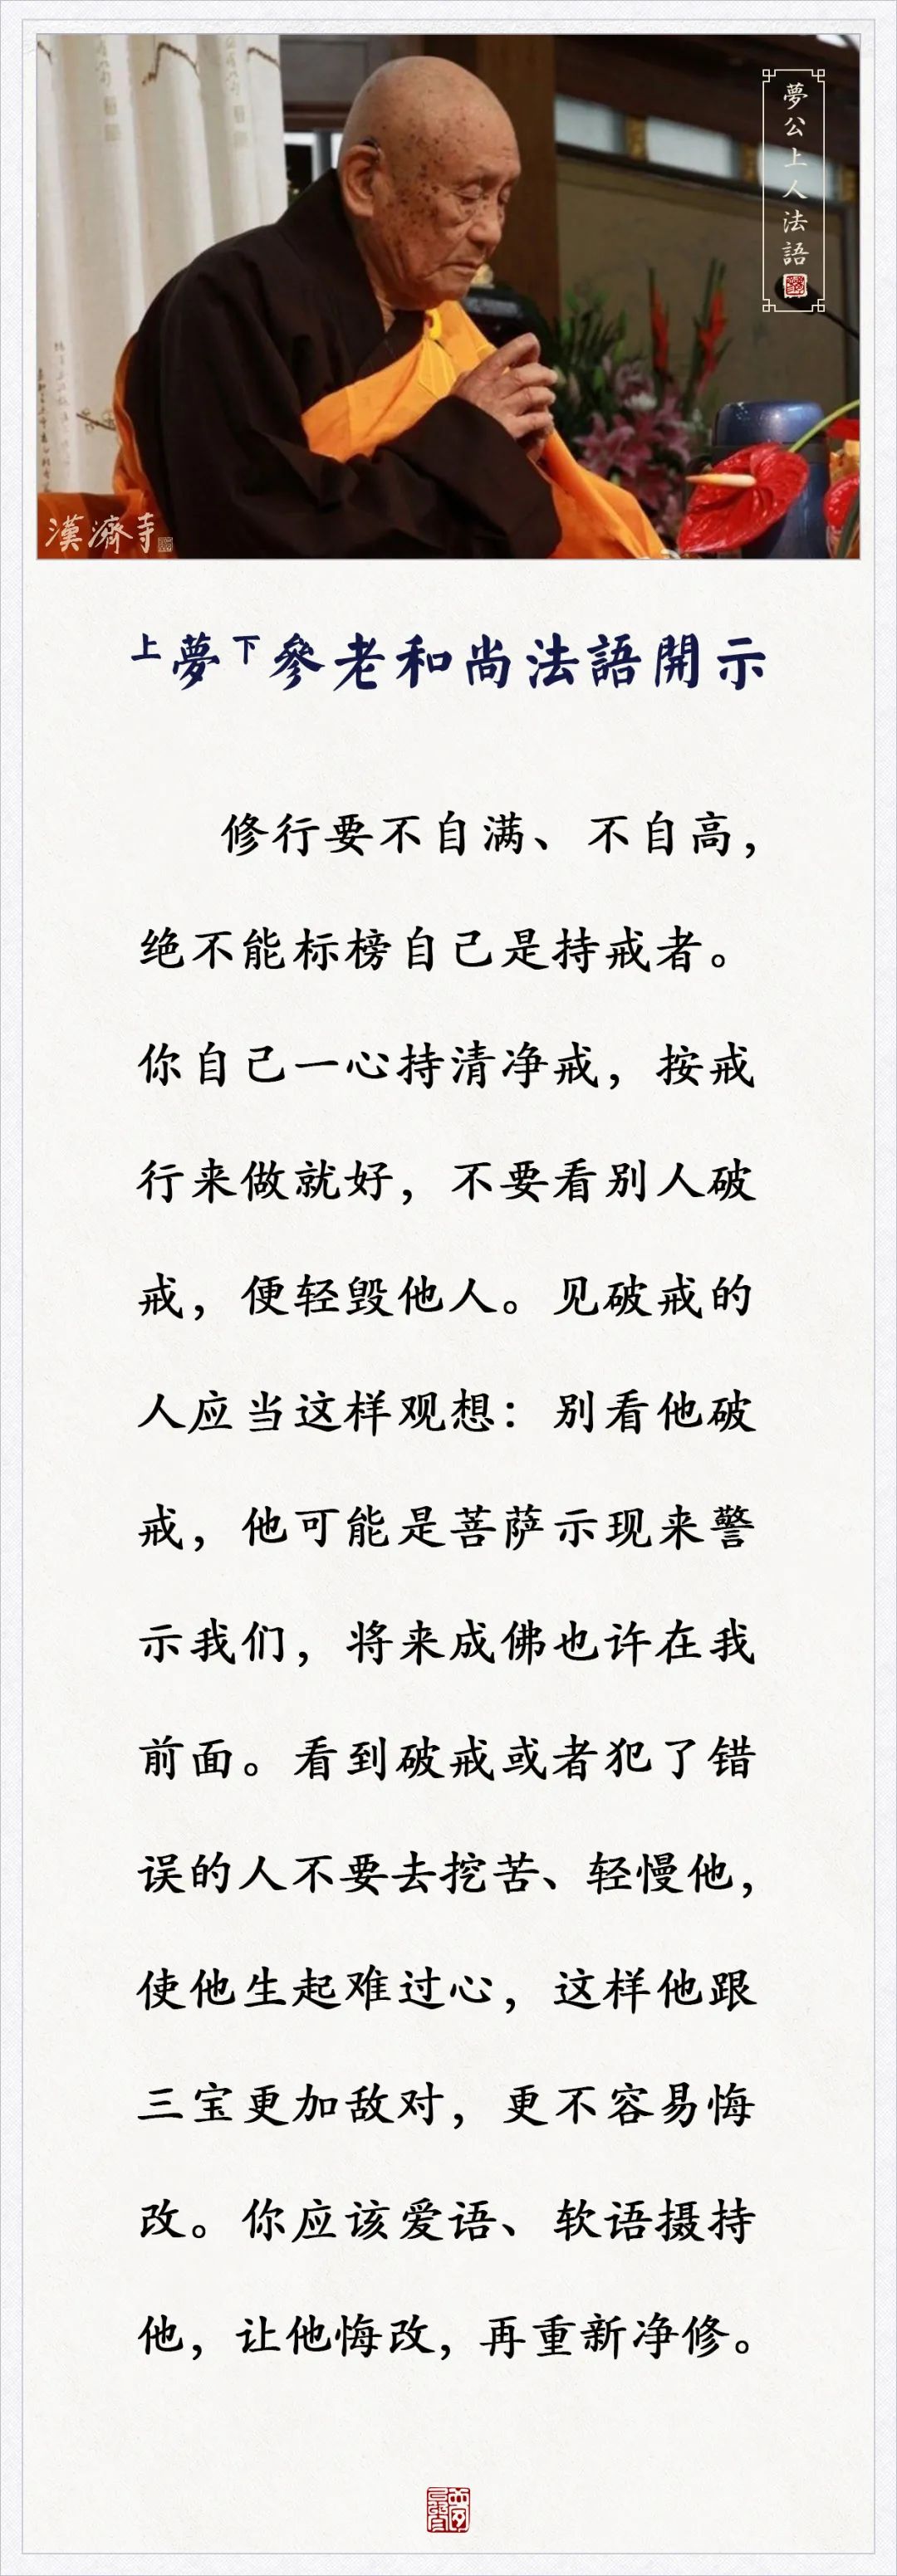 夢公上人法語
漢濟寺
上夢下參老和尚法語開示
修行要不自满、不自高，
绝不能标榜自己是持戒者。
你自己一心持清净戒，按戒
行来做就好，不要看别人破
戒，便轻毁他人。见破戒的
人应当这样观想：别看他破
戒，他可能是菩萨示现来警
示我们，将来成佛也许在我
前面。看到破戒或者犯了错
误的人不要去挖苦、轻慢他，
使他生起难过心，这样他跟
三宝更加敌对，更不容易悔
改。你应该爱语、软语摄持
他，让他悔改，再重新净修。